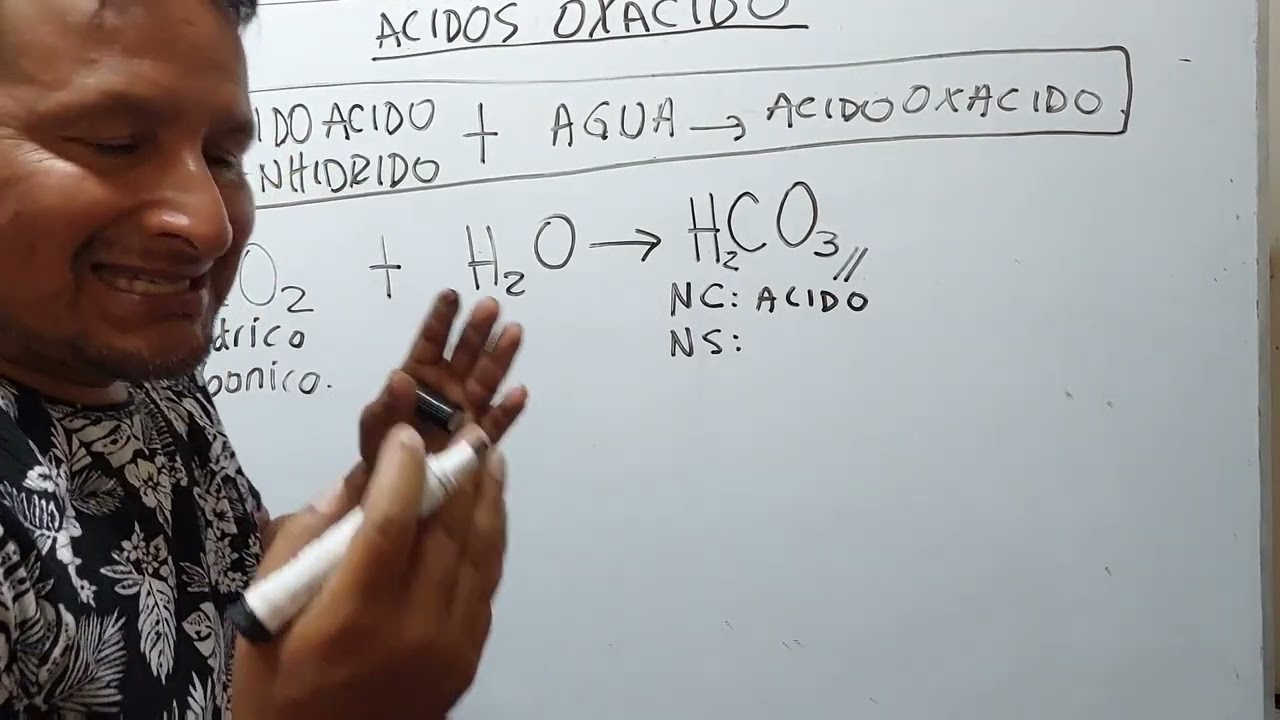 ACIDOS OXACIDO
IDO ACIDO + AGUA → ACIDO OXACIDO
NHIDRIDO
O₂ + H₂O → H₂CO₃
drico
bonico.
NC: ACIDO
NS: